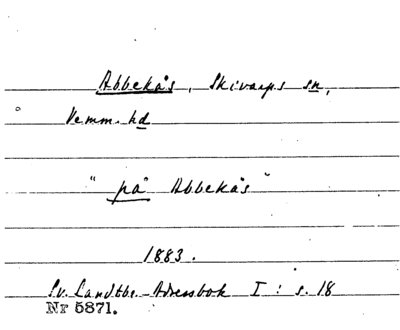 Abbekås, Skivarps sn,
Vemm. hd
"på Abbekås"
1883.
Sv. Landtbr.-Adressbok I: s. 18
Nr 5871.